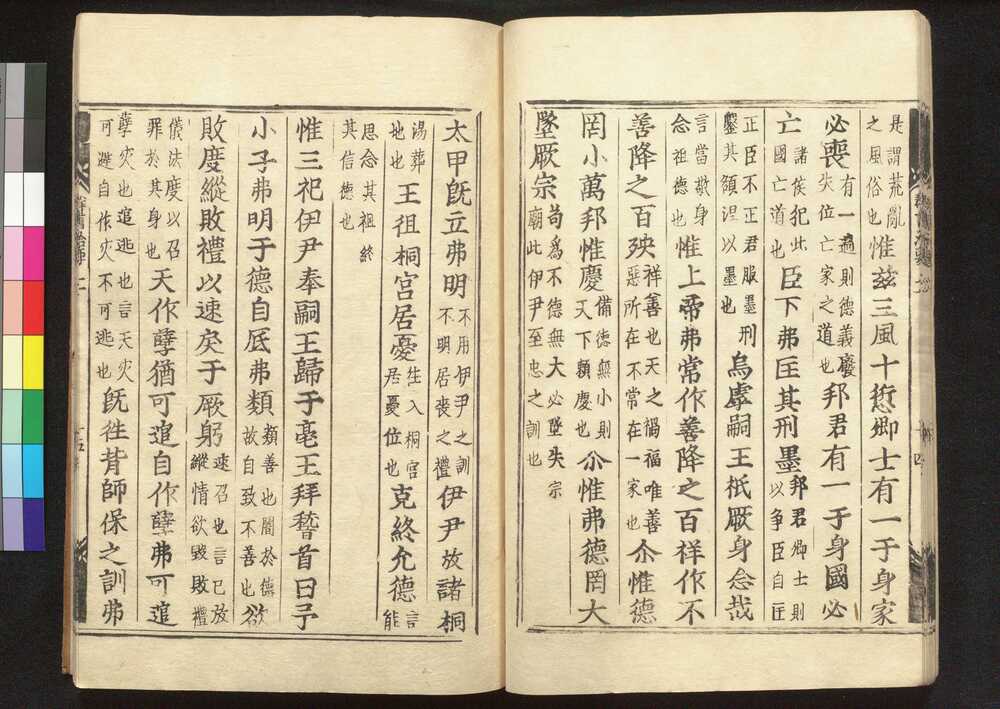 是謂荒亂之風俗也惟茲三風十愆卿士有一于身家
必喪有一過則德義廢失位亡家之道也邦君有一于身國必
亡諸侯犯此國亡道也臣下弗匡其刑墨邦君卿士則以争臣自匡
正臣不正君服墨刑鑿其頟涅以墨也烏虖嗣王祇厥身念哉
言當敬身念祖德也惟上帝弗常作善降之百祥作不
善降之百殃祥善也天之禍福唯善惡所在不常在一家也尒惟德
罔小萬邦惟慶脩德無小則天下賴慶也尒惟弗德罔大
墜厥宗苟為不德無大必墜失宗廟此伊尹至忠之訓也
太甲既立弗明不用伊尹之訓不明居喪之禮伊尹放諸桐
湯葬地也王徂桐宮居憂往入桐宮居憂位也克終允德言能
思念其祖終其信德也
惟三祀伊尹奉嗣王歸于亳王拜稽首曰予
小子弗明于德自厎弗類類善也闇於德故自致不善也欲
敗度縱敗禮以速戾于厥躬速召也言已放縱情欲毀敗禮
儀法度以召罪於其身也天作孽猶可追自作孽弗可追
孽災也追逃也言天災可避自作災不可逃也既往背師保之訓弗